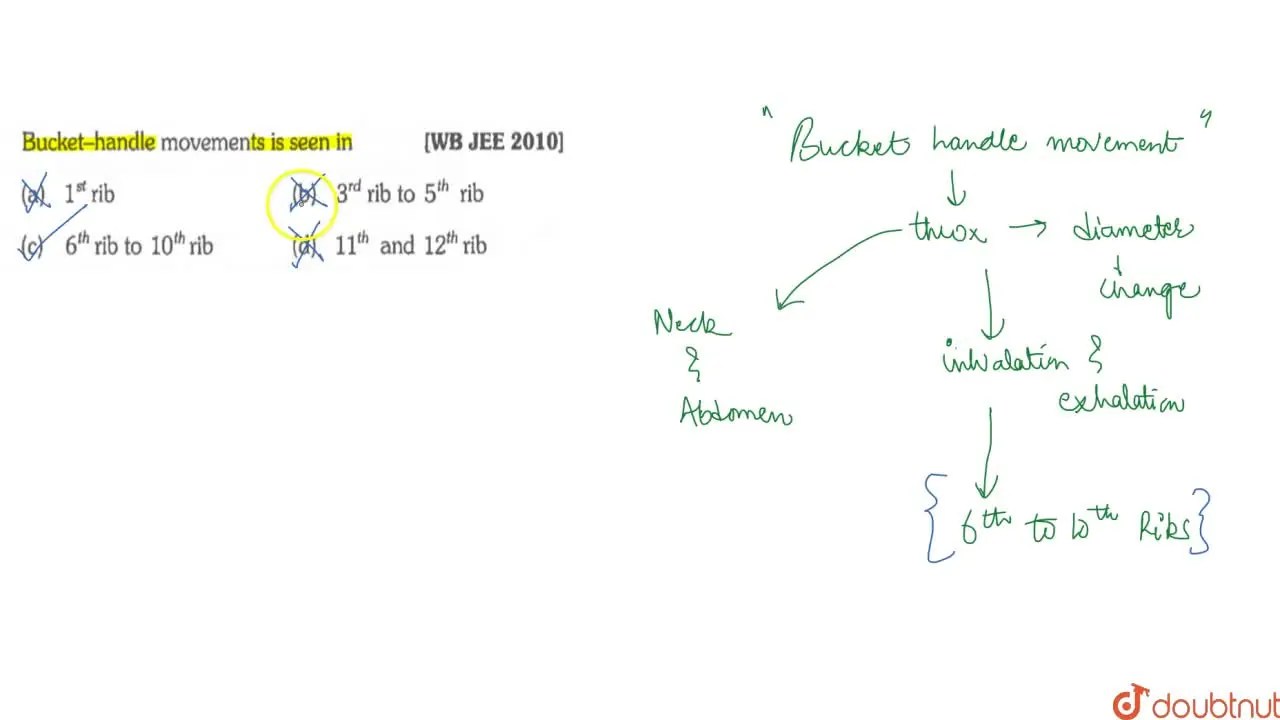 Bucket–handle movements is seen in [WB JEE 2010]
(a) 1st rib (b) 3rd rib to 5th rib
(c) 6th rib to 10th rib (d) 11th and 12th rib
"Bucket handle movement"
throx → diameter
change
Neck
&
Abdomen
inhalation &
exhalation
{6th to 10th Ribs}
doubtnut